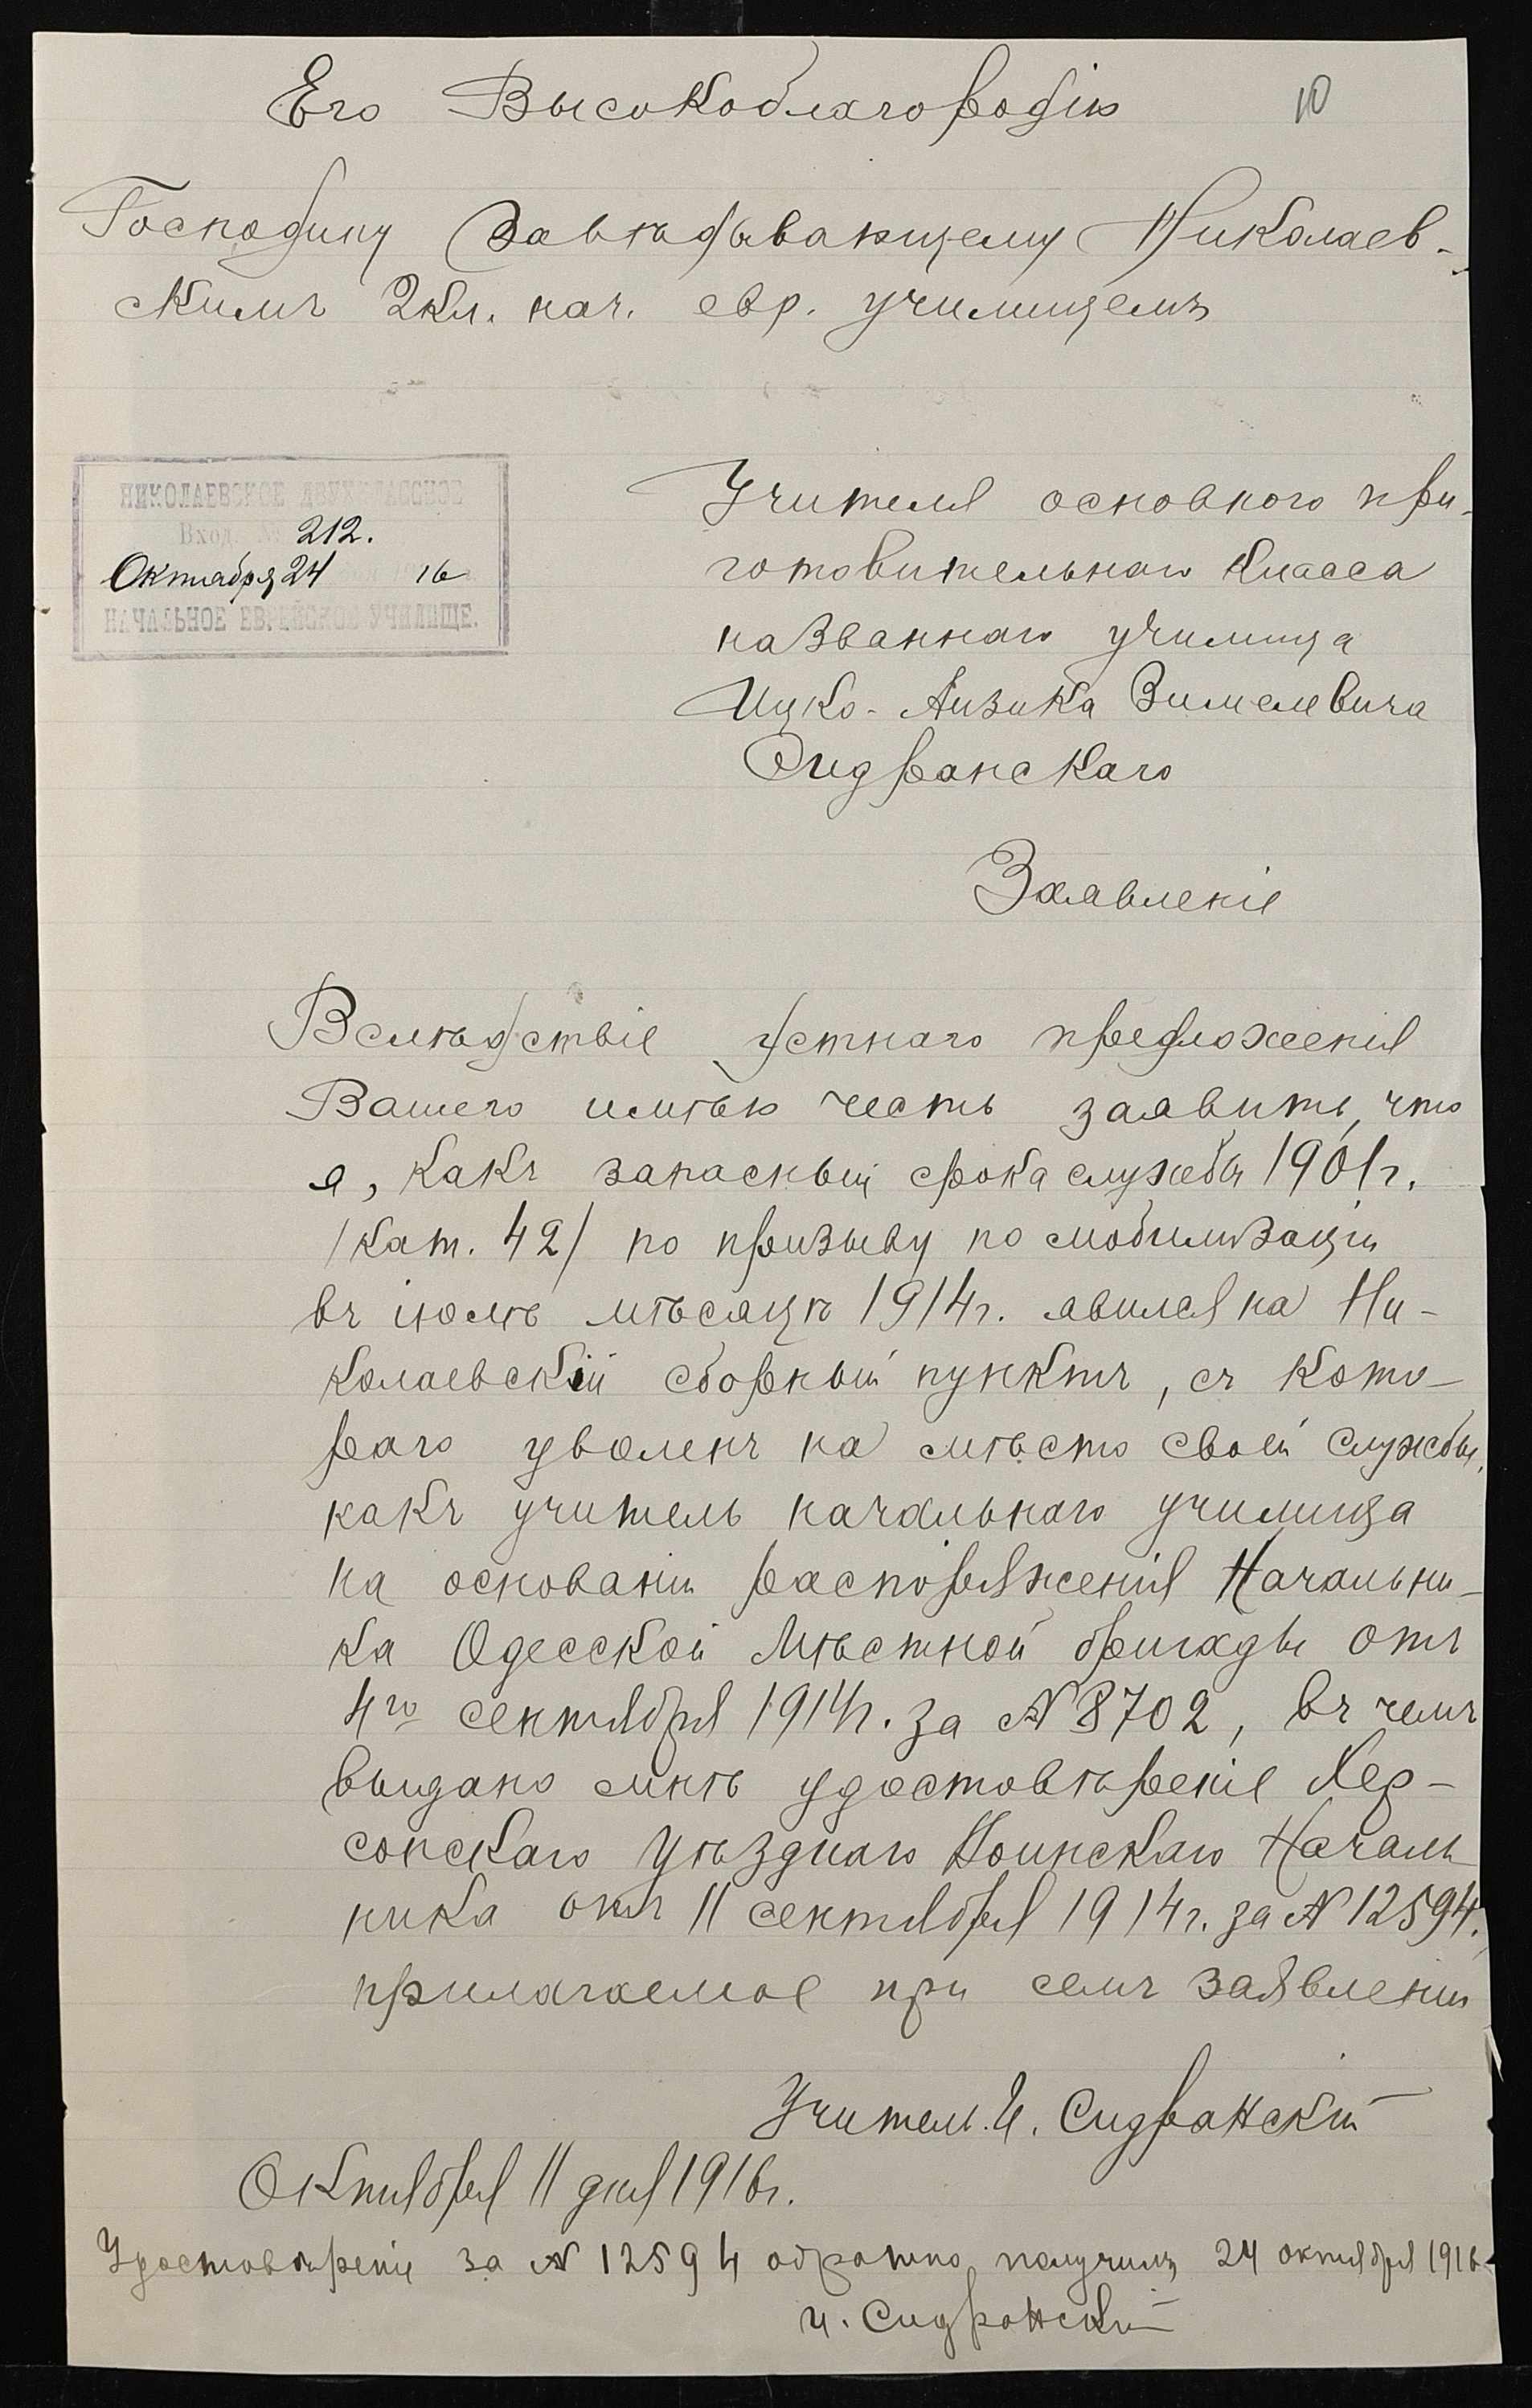 Его Высокоблагородію
10
Господину Завѣдывающему Николаев-
скимъ 2кл. нач. евр. училищемъ
НИКОЛАЕВСКОЕ ДВУХКЛАССНОЕ
Вход. № 212.
Октября 24 16
НАЧАЛЬНОЕ ЕВРЕЙСКОЕ УЧИЛИЩЕ.
Учителя основного при-
готовительнаго класса
названнаго училища
Ицко-Аизика Зимелевича
Сидранскаго
Заявленіе
Вслѣдствіе устнаго предложенія
Вашего имѣю честь заявить, что
я, какъ запасный срока службы 1901г.
/кат. 42/ по призыву по мобилизаціи
въ іюлѣ мѣсяцѣ 1914г. явился на Ни-
колаевскій сборный пунктъ, съ кото-
раго уволенъ на мѣсто своей службы,
какъ учитель начальнаго училища
на основаніи распоряженія Начальни-
ка Одесской Мѣстной бригады отъ
4го сентября 1914г. за № 8702, въ чемъ
выдано мнѣ удостовѣреніе Хер-
сонскаго Уѣзднаго Воинскаго Началь-
ника отъ 11 сентября 1914г. за № 12594.
прилагаемое при семъ заявленіи
Учитель И. Сидранскій
Октября 11 дня 1916г.
Удостовѣреніе за № 12594 обратно получилъ 24 октября 1916
И. Сидранскій